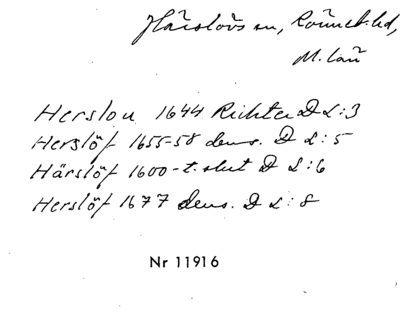 Härslövs sn, Rönneb. hd,
M. län
Herslou 1644 Richter D L:3
Herslöf 1655-58 dens. D L:5
Härslöf 1600-t. slut D L:6
Herslöf 1677 dens. D L:8
Nr 11916